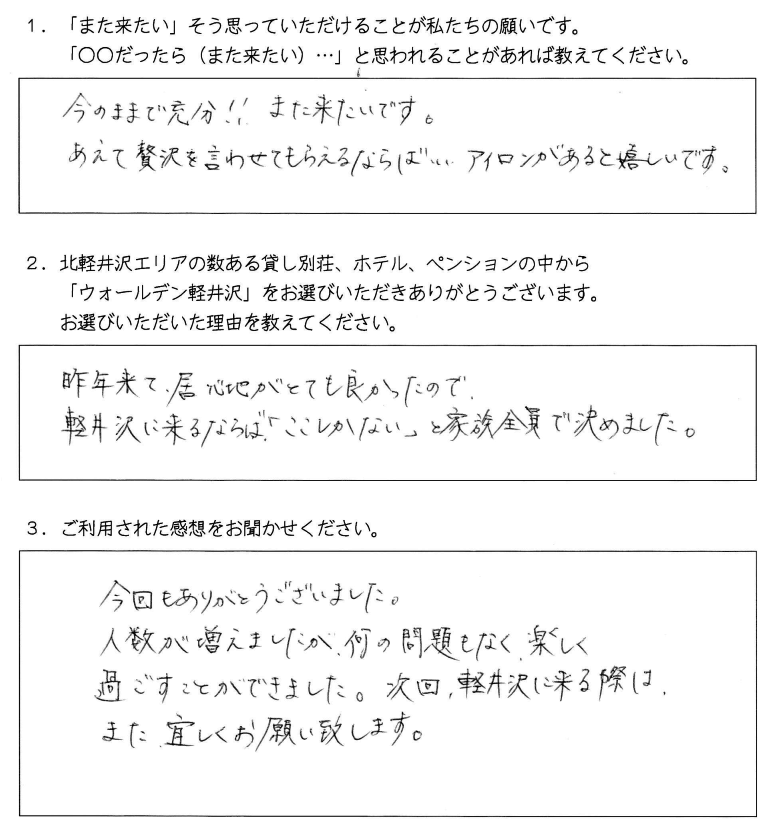 1．「また来たい」そう思っていただけることが私たちの願いです。
「〇〇だったら（また来たい）…」と思われることがあれば教えてください。
今のままで充分!! また来たいです。
あえて贅沢を言わせてもらえるならば… アイロンがあると嬉しいです。
2．北軽井沢エリアの数ある貸し別荘、ホテル、ペンションの中から
「ウォールデン軽井沢」をお選びいただきありがとうございます。
お選びいただいた理由を教えてください。
昨年来て、居心地がとても良かったので、
軽井沢に来るならば、「ここしかない」と家族全員で決めました。
3．ご利用された感想をお聞かせください。
今回もありがとうございました。
人数が増えましたが、何の問題もなく、楽しく
過ごすことができました。次回、軽井沢に来る際は、
また、宜しくお願い致します。